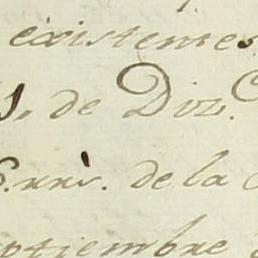 existentes
1. de Diz.
de la
eptiembre